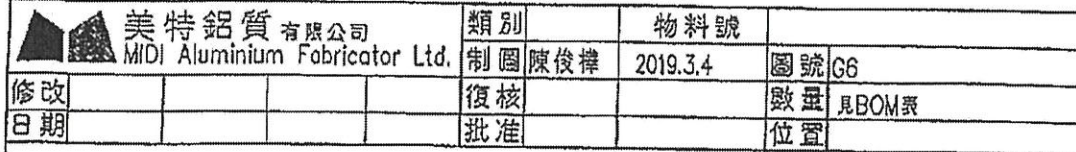 美特鋁質有限公司 類別 物料號
MIDI Aluminium Fabricator Ltd. 制圖 陳俊樺 2019.3.4 圖號 G6
修改 復核 數量 見BOM表
日期 批准 位置